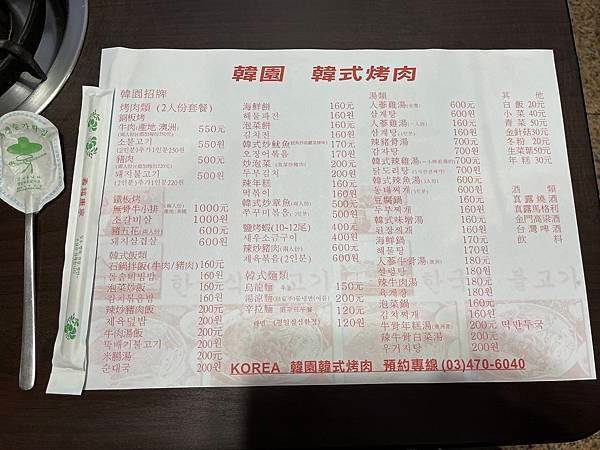 韓園 韓式烤肉
韓園招牌
烤肉類 (2人份套餐)
銅板烤
牛肉(產地.澳洲) 550元
소불고기 550원
豬肉 500元
돼지불고기 500원
鐵板燒
無骨牛小排 1000元
소갈비살 1000원
豬五花(兩人份) 600元
돼지삼겹살 600원
韓式飯類
石鍋拌飯(牛肉/豬肉) 160元
돌솥비빔밥 160원
泡菜炒飯 160元
김치볶음밥 160원
辣炒豬肉飯 200元
제육덮밥 200원
牛肉湯飯 200元
뚝배기불고기 200원
米腸湯 200元
순대국 200원
海鮮餅 160元
해물파전 160원
泡菜餅 160元
김치전 160원
韓式炒魷魚 170元
오징어볶음 170원
炒泡菜 200元
두부김치 200원
辣年糕 160元
떡볶이 160원
韓式炒章魚(兩人份) 500元
쭈꾸미볶음 500원
鹽烤蝦(10-12尾) 400元
새우소금구이 400원
辣炒豬肉(兩人份) 600元
제육볶음(2인분) 600원
韓式麵類
烏龍麵 우동 150元
湯涼麵 200元
辛拉麵 120元
라면 120원
湯類
人參雞湯 600元
삼계탕 600원
人參雞湯 700元
삼계탕 700원
辣豬骨湯 700元
감자탕 700원
韓式辣雞湯 700元
닭도리탕 700원
韓式辣魚湯 600元
동태찌개 600원
豆腐鍋 160元
두부찌개 160원
韓式味增湯 160元
된장찌개 160원
海鮮鍋 170元
해물탕 170원
人參牛骨湯 180元
설렁탕 180원
辣牛肉湯 180元
육개장 180원
泡菜鍋 160元
김치찌개 160원
牛骨年糕湯 180元 떡만두국
辣牛骨白菜湯 200元
우거지탕 200원
其他
白飯 20元
小菜 40元
青菜 50元
金針菇30元
冬粉 20元
生菜葉50元
年糕 30元
酒類
真露燒酒
真露馬格利
金門高粱酒
台灣啤酒
飲料
KOREA 韓園韓式烤肉 預約專線 (03)470-6040